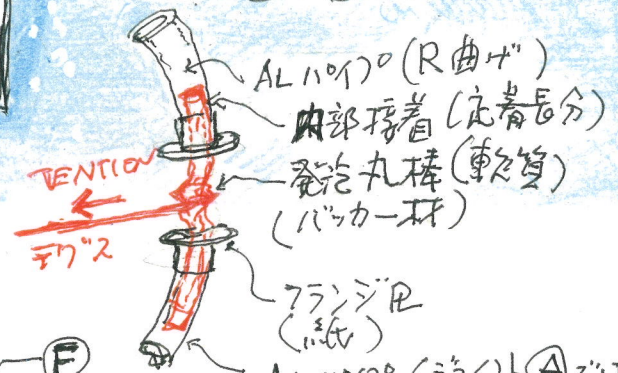 ALパイプ(R曲げ)
内部接着(定着長分)
発泡丸棒(軟質)
(バッカー材)
TENTION
テグス
フランジ
(紙)
F
A